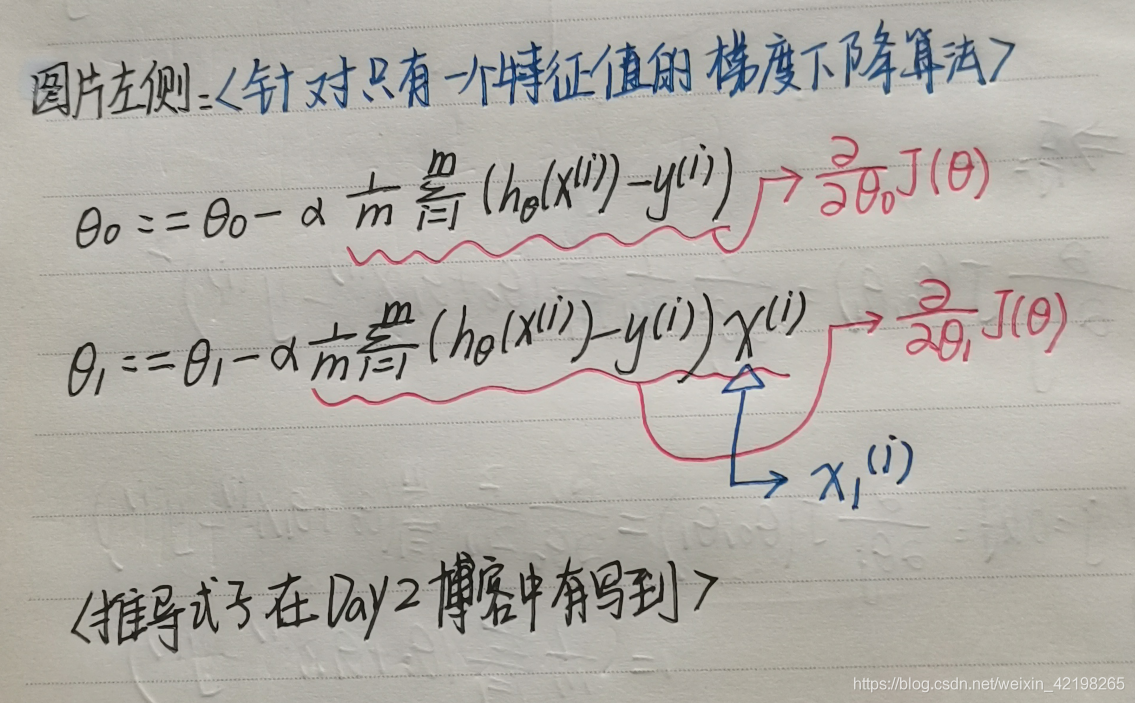 图片左侧:<针对只有一个特征值的 梯度下降算法>
θ₀ := θ₀ - α 1/m Σ_{i=1}^{m} (h_θ(x^{(i)}) - y^{(i)}) → ∂/∂θ₀ J(θ)
θ₁ := θ₁ - α 1/m Σ_{i=1}^{m} (h_θ(x^{(i)}) - y^{(i)}) x^{(i)} → ∂/∂θ₁ J(θ)
→ x₁^{(i)}
<推导式子在Day2博客中有写到>
https://blog.csdn.net/weixin_42198265